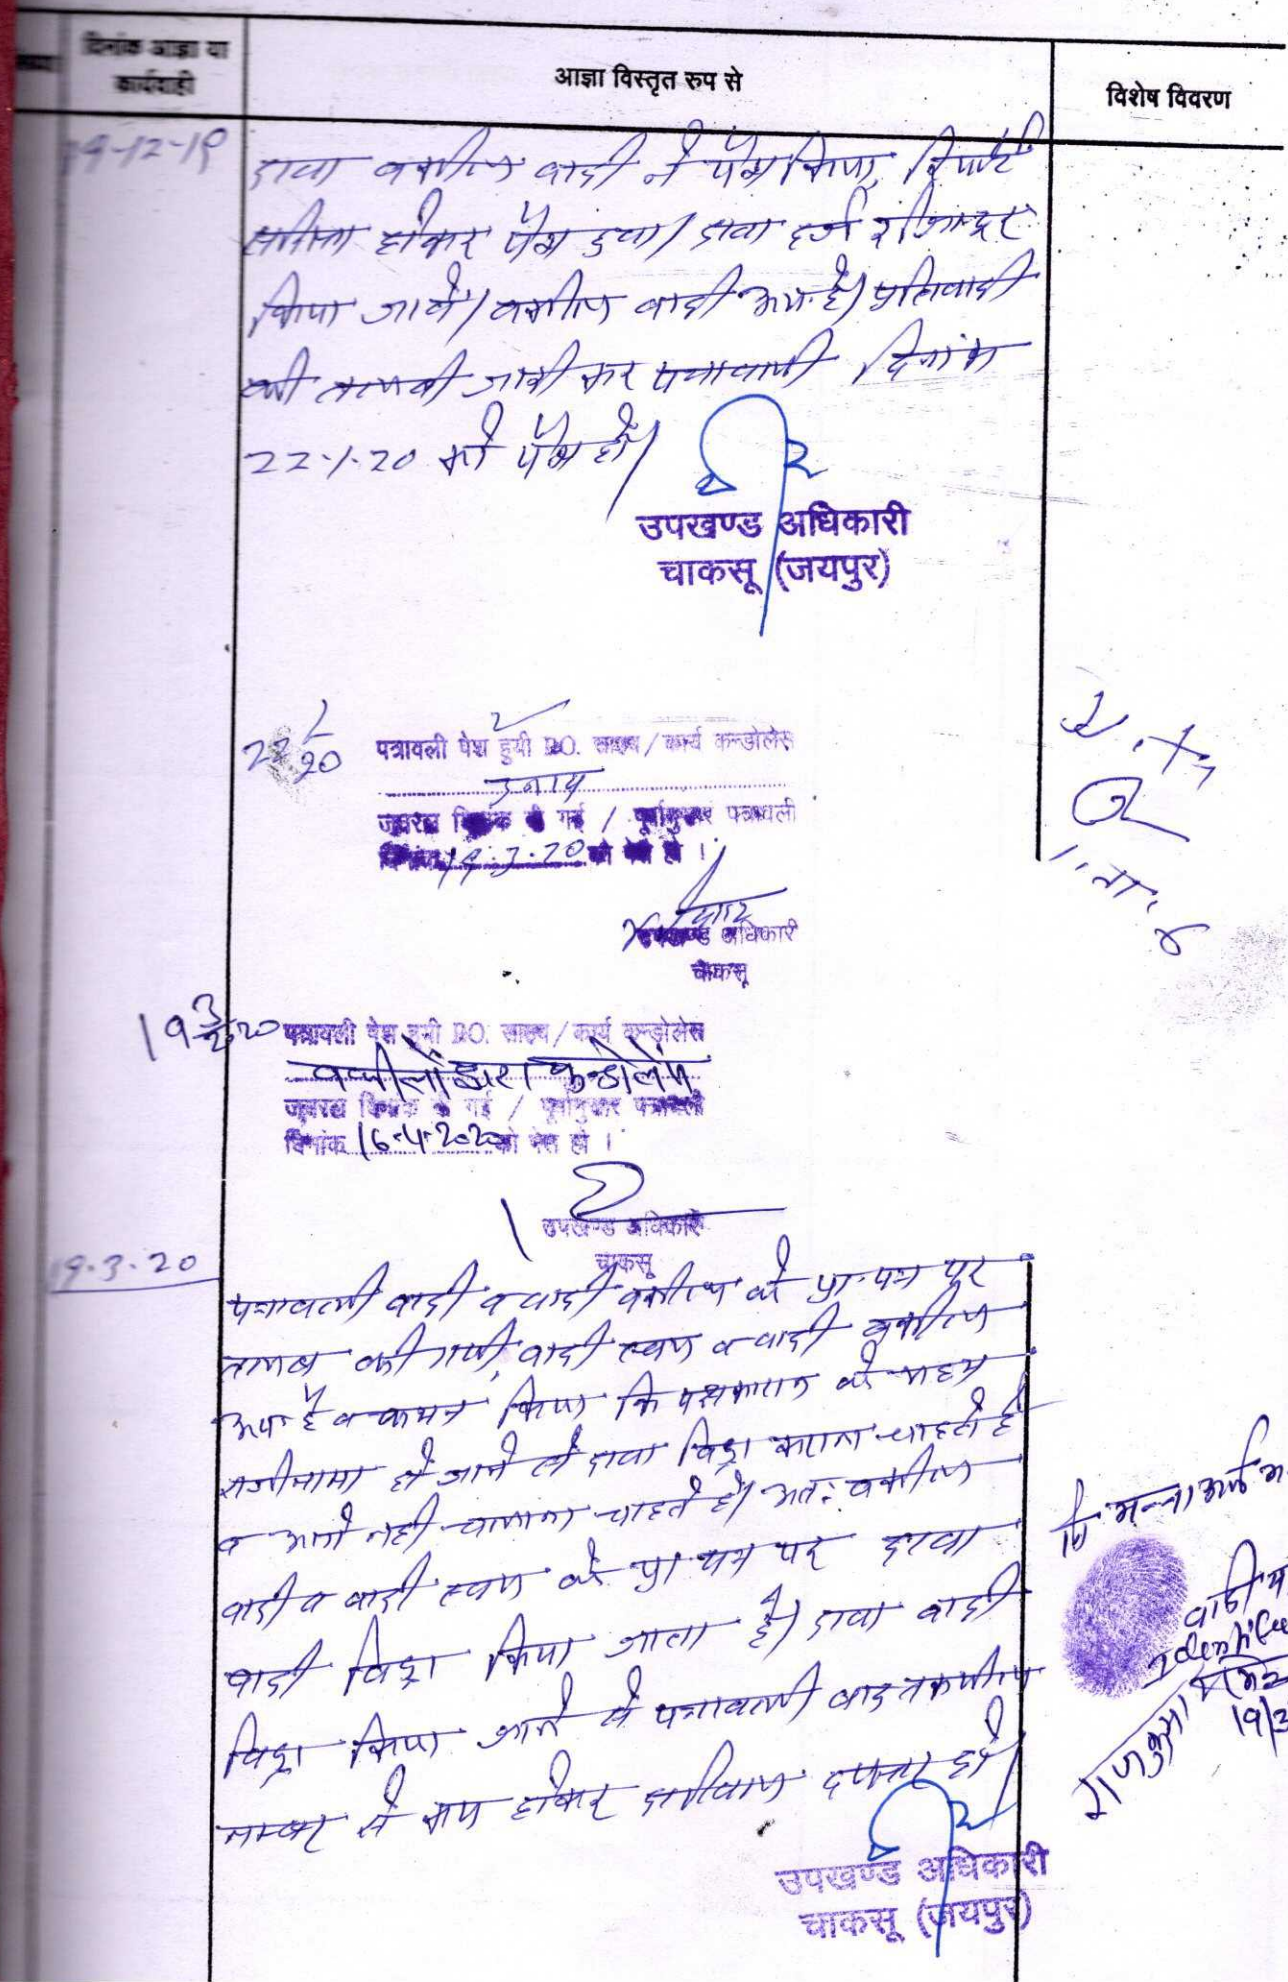 दिनांक आज्ञा या
कार्यवाही
आज्ञा विस्तृत रुप से
विशेष विवरण
19-12-19
दावा वकील वादी ने पेश किया, रिपोर्ट
होकर पेश हुवा। दावा दर्ज रजिस्टर
किया जावे। वकील वादी उप. है। प्रतिवादी
की तलबी जारी कर पत्रावली दिनांक
22.1.20 को पेश हो।
उपखण्ड अधिकारी
चाकसू (जयपुर)
22/1/20
पत्रावली पेश हुयी P.O. साहब / कार्य कन्डोलेंस
गई / पूर्वानुसार पत्रावली
दिनांक 19.3.20 को पेश हो ।
उपखण्ड अधिकारी
चाकसू
19 3/20
पत्रावली पेश हुयी P.O. साहब / कार्य कन्डोलेंस
वकीलों द्वारा कन्डोलेंस
गई / पूर्वानुसार पत्रावली
दिनांक 16.4.2020 को पेश हो ।
उपखण्ड अधिकारी
चाकसू
19.3.20
पत्रावली वादी व वादी वकील के प्रा. पत्र पर
तलब की गयी, वादी स्वयं व वादी वकील
उप. है व कथन किया कि पक्षकारान के मध्य
राजीनामा हो जाने से दावा विड्रा कराना चाहते है
व आगे नही चलाना चाहते है। अतः वकील
वादी व वादी स्वयं के प्रा पत्र पर दावा
वादी विड्रा किया जाता है। दावा वादी
विड्रा किया जाने से पत्रावली बाद तकमील
नम्बर से कम होकर दाखिल दफ्तर हो।
उपखण्ड अधिकारी
चाकसू (जयपुर)